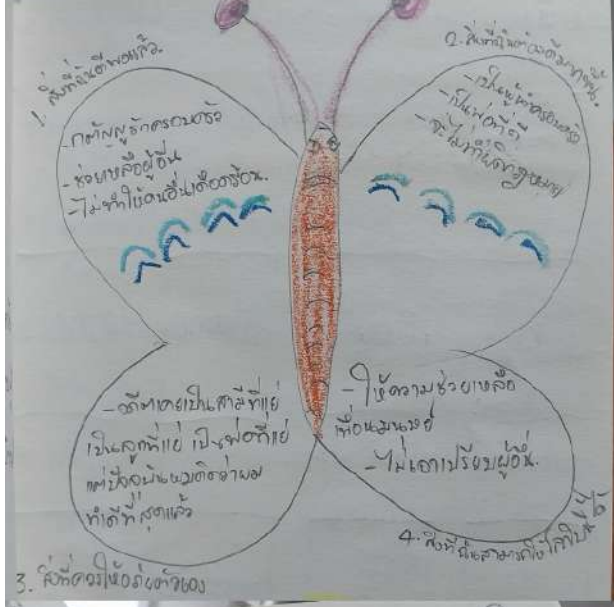 1. สิ่งที่ฉันดีพอแล้ว.
- กตัญญูรักครอบครัว
- ช่วยเหลือผู้อื่น
- ไม่ทำให้คนอื่นเดือดร้อน.
2. สิ่งที่ฉันต้องดีมากขึ้น.
- เป็นผู้นำครอบครัว
- เป็นพ่อที่ดี
- จะไม่ทำผิดกฎหมาย
- อดีตเคยเป็นสามีที่แย่
เป็นลูกที่แย่ เป็นพ่อที่แย่
แต่ปัจจุบันผมคิดว่าผม
ทำดีที่สุดแล้ว
3. สิ่งที่ควรให้อภัยตัวเอง
- ให้ความช่วยเหลือ
เพื่อนมนุษย์
- ไม่เอาเปรียบผู้อื่น.
4. สิ่งที่ฉันสามารถให้โลกใบนี้ได้